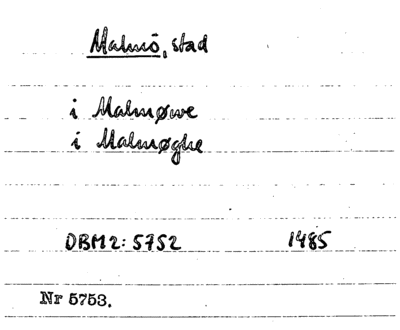 Malmö, stad
i Malmøwe
i Malmøghe
DBM2: 5752 1485
Nr 5753.